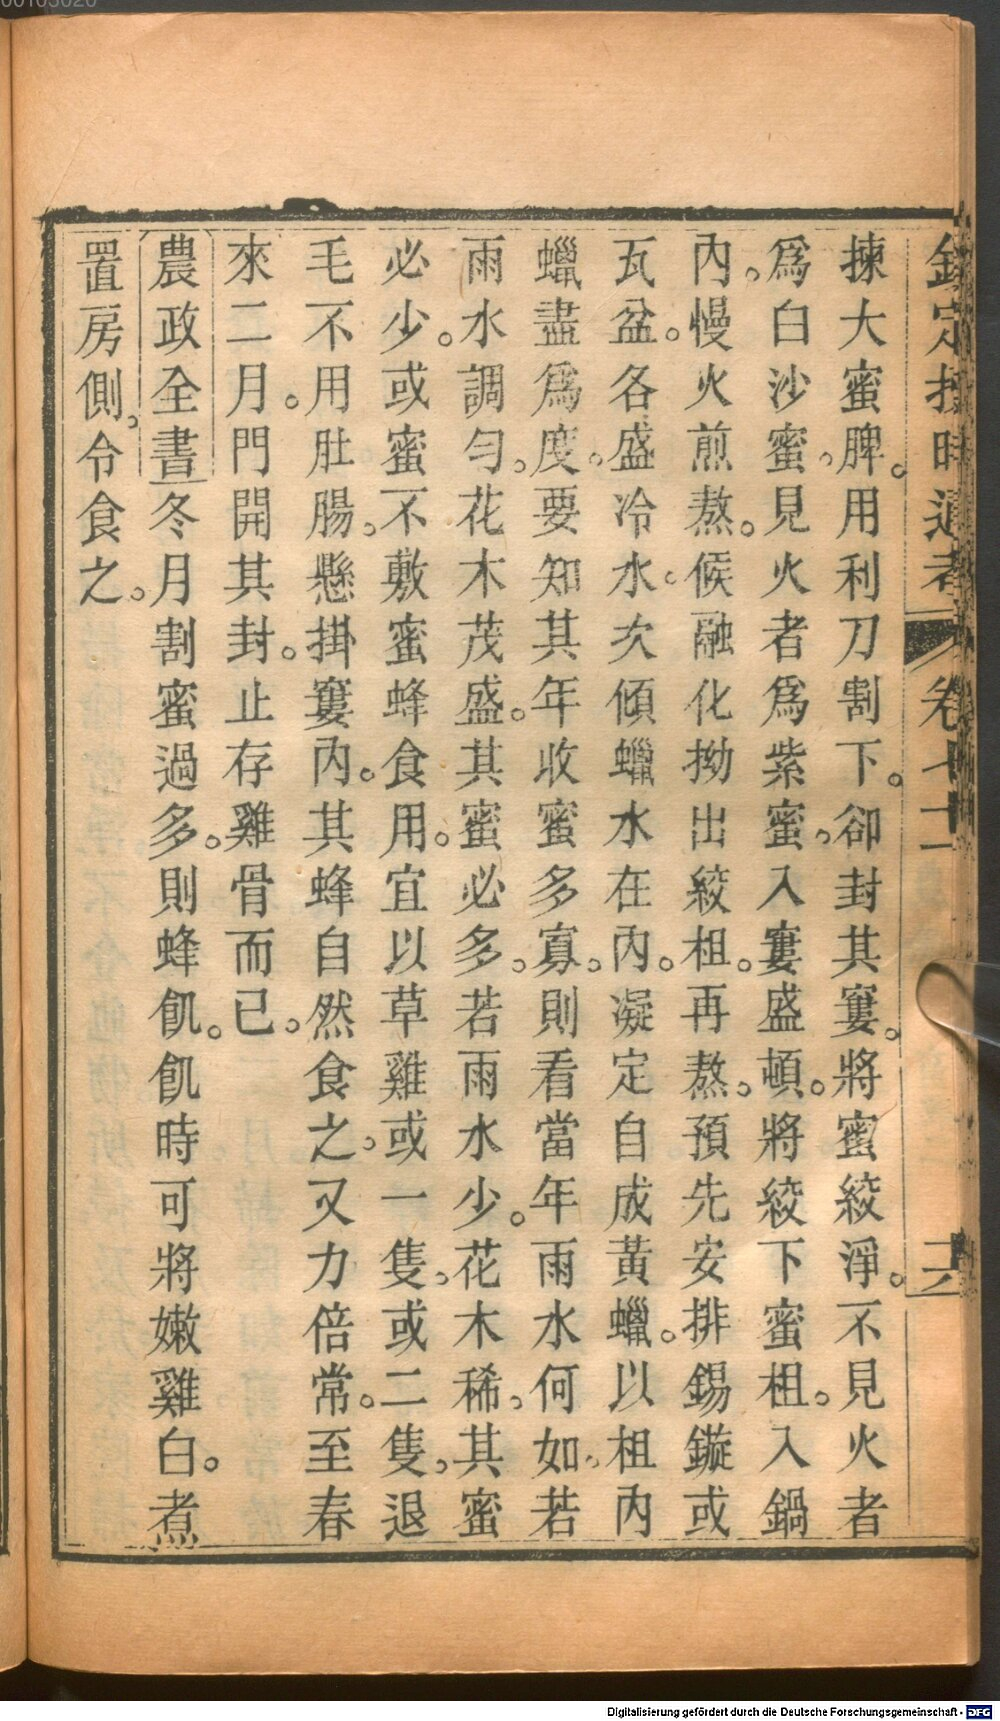 揀大蜜脾。用利刀割下。卻封其窶。將蜜絞淨。不見火者
爲白沙蜜。見火者爲紫蜜。入窶盛頓。將絞下蜜柤。入鍋
內。慢火煎熬。候融化拗出絞柤。再熬。預先安排錫鏇或
瓦盆。各盛冷水。次傾蠟水在內。凝定自成黃蠟。以柤內
蠟盡爲度。要知其年收蜜多寡。則看當年雨水何如。若
雨水調勻。花木茂盛。其蜜必多。若雨水少。花木稀。其蜜
必少。或蜜不敷蜜蜂食用。宜以草雞或一隻。或二隻。退
毛不用肚腸。懸掛窶內。其蜂自然食之。又力倍常。至春
來二月。門開其封。止存雞骨而已。
農政全書冬月割蜜過多。則蜂飢。飢時可將嫩雞白。煮
置房側。令食之。
欽定授時通考 卷七十二
Digitalisierung gefördert durch die Deutsche Forschungsgemeinschaft - DFG